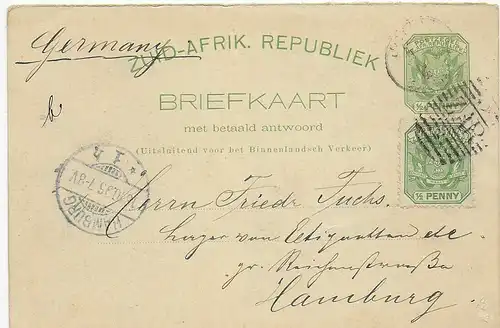 Germany
ZUID-AFRIK. REPUBLIEK
BRIEFKAART
met betaald antwoord
(Uitsluitend voor het Binnenlandsch Verkeer)
½ PENNY
HAMBURG
Herrn Friedr Fuchs.
Lager von Etiquetten etc
gr. Reichenstrasse
Hamburg.